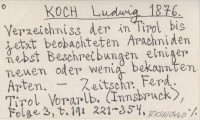 KOCH Ludwig 1876.
Verzeichniss der in Tirol bis
jetzt beobachteten Arachniden
nebst Beschreibungen einiger
neuen oder wenig bekannten
Arten. — Zeitschr. Ferd.
Tirol Vorarlb. (Innsbruck),
Folge 3, t. 19: 221-354.